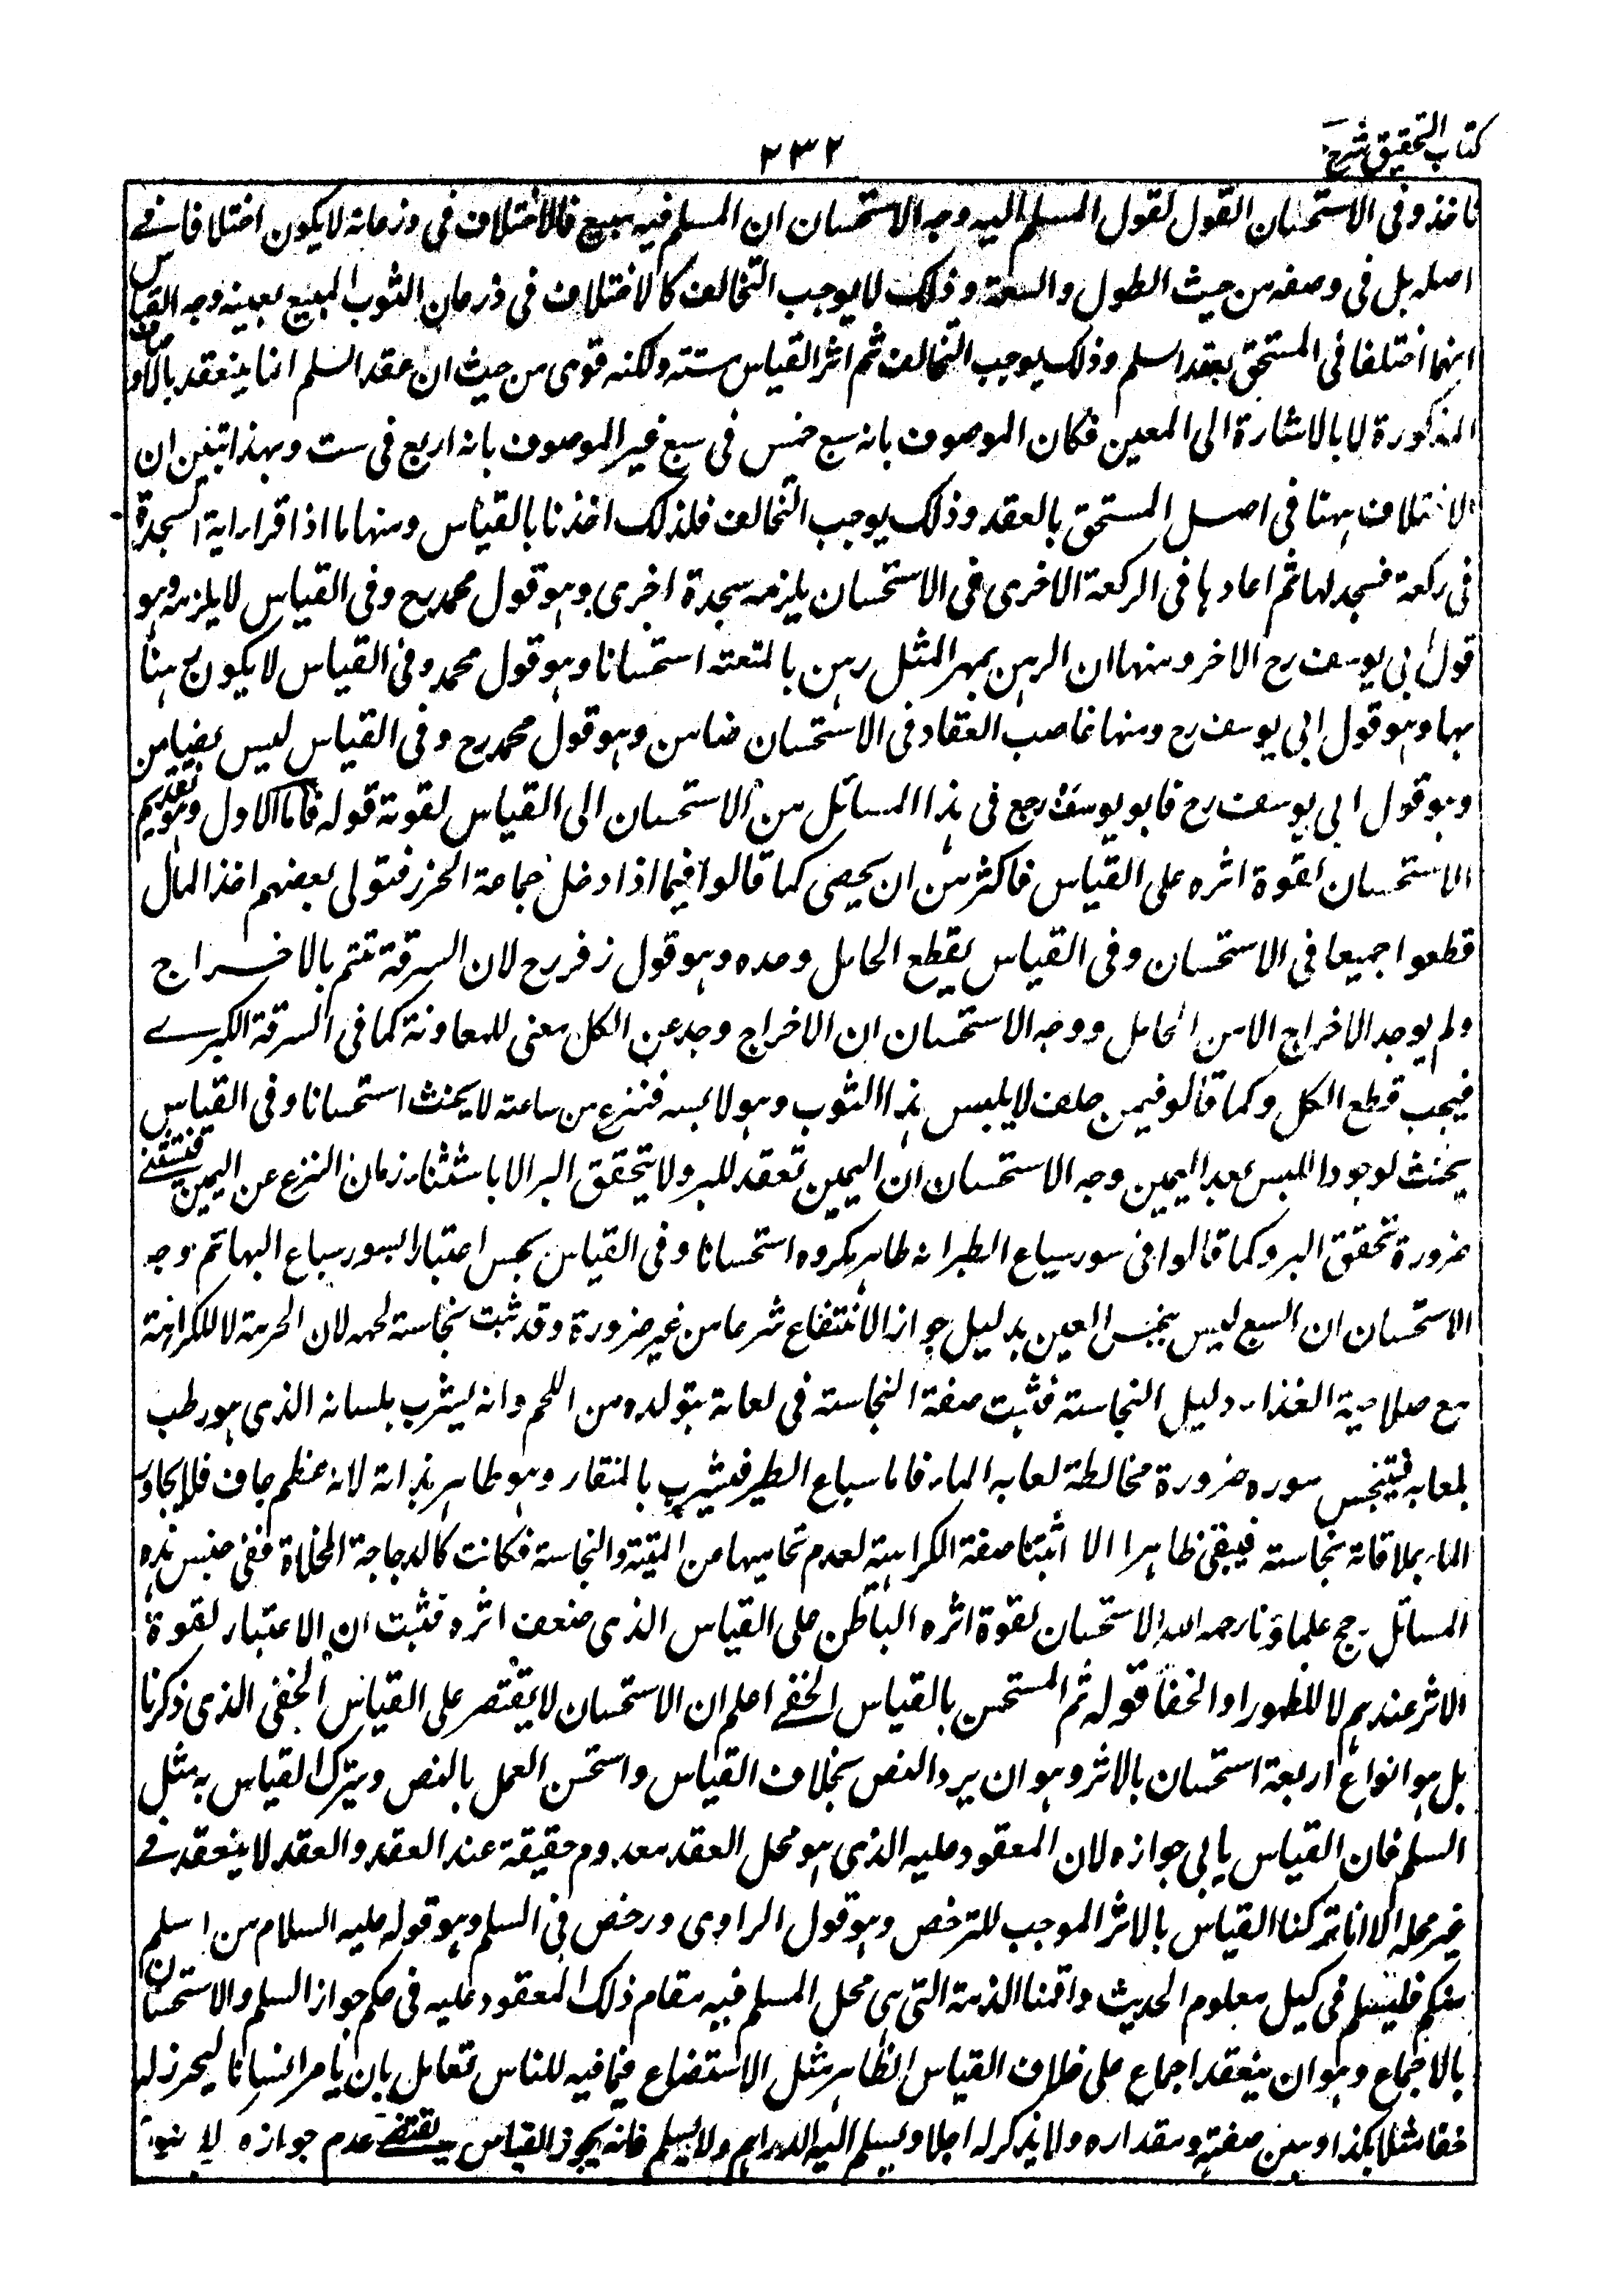 كتاب التحقيق شرح
٢٣٢
ناخذ وفى الاستحسان القول لقول المسلم اليه وجه الاستحسان ان المسلم فيه مبيع فالاختلاف فى ذرعانه لا يكون اختلافا فى
اصله بل فى وصفه من حيث الطول والسعة وذلك لا يوجب التخالف كالاختلاف فى ذرعان الثوب المبيع بعينه وجه القياس
انهما اختلفا فى المستحق بعقد السلم وذلك يوجب التخالف ثم اثر القياس مستتر ولكنه قوى من حيث ان عقد السلم انما ينعقد بالاوصاف
المذكورة لا بالاشارة الى المعين فكان الموصوف بانه سبع خمس فى سبع غير الموصوف بانه اربع فى ست وبهذا تبين ان
الاختلاف ههنا فى اصل المستحق بالعقد وذلك يوجب التخالف فلذلك اخذنا بالقياس ومنها ما اذا قرأ اية السجدة
فى ركعة فسجد لها ثم اعادها فى الركعة الاخرى فى الاستحسان يلزمه سجدة اخرى وهو قول محمد رح وفى القياس لا يلزمه وهو
قول ابى يوسف رح الاخر ومنها ان الرهن بمهر المثل رهن بالمتعة استحسانا وهو قول محمد وفى القياس لا يكون رهنا
بها وهو قول ابى يوسف رح ومنها غاصب العقار فى الاستحسان ضامن وهو قول محمد رح وفى القياس ليس بضامن
وهو قول ابى يوسف رح فابو يوسف رجع فى هذا المسائل من الاستحسان الى القياس لقوته قوله فاما الاول وهو تقديم
الاستحسان لقوة اثره على القياس فاكثر من ان يحصى كما قالوا فيما اذا دخل جماعة الحرز فتولى بعضهم اخذ المال
قطعوا جميعا فى الاستحسان وفى القياس يقطع الحامل وحده وهو قول زفر رح لان السرقة تتم بالاخراج
ولم يوجد الاخراج الا من الحامل ووجه الاستحسان ان الاخراج وجد عن الكل معنى للمعاونة كما فى السرقة الكبرى
فيجب قطع الكل وكما قالو فيمن حلف لا يلبس هذا الثوب وهو لابسه فنزع من ساعته لا يحنث استحسانا وفى القياس
يحنث لوجود اللبس بعد اليمين وجه الاستحسان ان اليمين تعقد للبر ولا يتحقق البر الا باستثناء زمان النزع عن اليمين فتستثنى
ضرورة تحقق البر وكما قالوا فى سور سباع الطير انه طاهر مكروه استحسانا وفى القياس نجس اعتبارا بسور سباع البهائم وجه
الاستحسان ان السبع ليس بنجس العين بدليل جواز الانتفاع شرعا من غير ضرورة وقد ثبت نجاسة لحمه لان الحرمة لا للكراهة
مع صلاحية الغذاء دليل النجاسة فثبت صفة النجاسة فى لعابه بتولده من اللحم وانه يشرب بلسانه الذى هو رطب
بلعابه فيتنجس سوره ضرورة مخالطة لعابه الماء فاما سباع الطير فيشرب بالمنقار وهو طاهر بذاته لانه عظم جاف فلا يجاور
الماء بملاقاته نجاسة فيبقى طاهرا الا اثبتنا صفة الكراهية لعدم تحاميها من الميتة والنجاسة فكانت كالدجاجة المخلاة ففى جنس هذه
المسائل رجح علماؤنا رحمه الله الاستحسان لقوة اثره الباطن على القياس الذى ضعف اثره فثبت ان الاعتبار لقوة
الاثر عندهم لا للظهور او الخفأ قوله ثم المستحسن بالقياس الخفى اعلم ان الاستحسان لا يقتصر على القياس الخفى الذى ذكرنا
بل هو انواع اربعة استحسان بالاثر وهو ان يرد النص بخلاف القياس واستحسن العمل بالنص ويترك القياس به مثل
السلم فان القياس يابى جوازه لان المعقود عليه الذى هو محل العقد معدوم حقيقة عند العقد والعقد لا ينعقد فى
غير محله الا انا تركنا القياس بالاثر الموجب للترخص وهو قول الراوى ورخص فى السلم وهو قوله عليه السلام من اسلم
منكم فليسلم فى كيل معلوم الحديث واقمنا الذمة التى هى محل المسلم فيه مقام ذلك المعقود عليه فى حكم جواز السلم والاستحسان
بالاجماع وهو ان ينعقد اجماع على خلاف القياس الظاهر مثل الاستصناع فيما فيه للناس تعامل بان يامر انسانا ليحرز له
خفا مثلا بكذا وبين صفته ومقداره ولا يذكر له اجلا ويسلم اليه الدراهم ولا يسلم فانه يجوز القياس يقتضى عدم جوازه لا